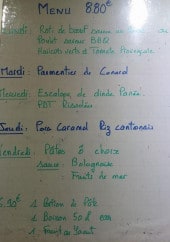 MENU 8.80€
Rôti de boeuf sauce au
sauce BBQ
Haricots verts et Tomate Provençale
Mardi: Parmentier de Canard
Mercredi: Escalope de dinde Panée
PDT Rissolées
Jeudi: Porc Caramel Riz cantonais
Vendredi: Pâtes à choix
sauce: Bolognaise
Fruits de mer
1 Portion de Pâte
1 Boisson 50 cl
1 Fruit ou Yaourt